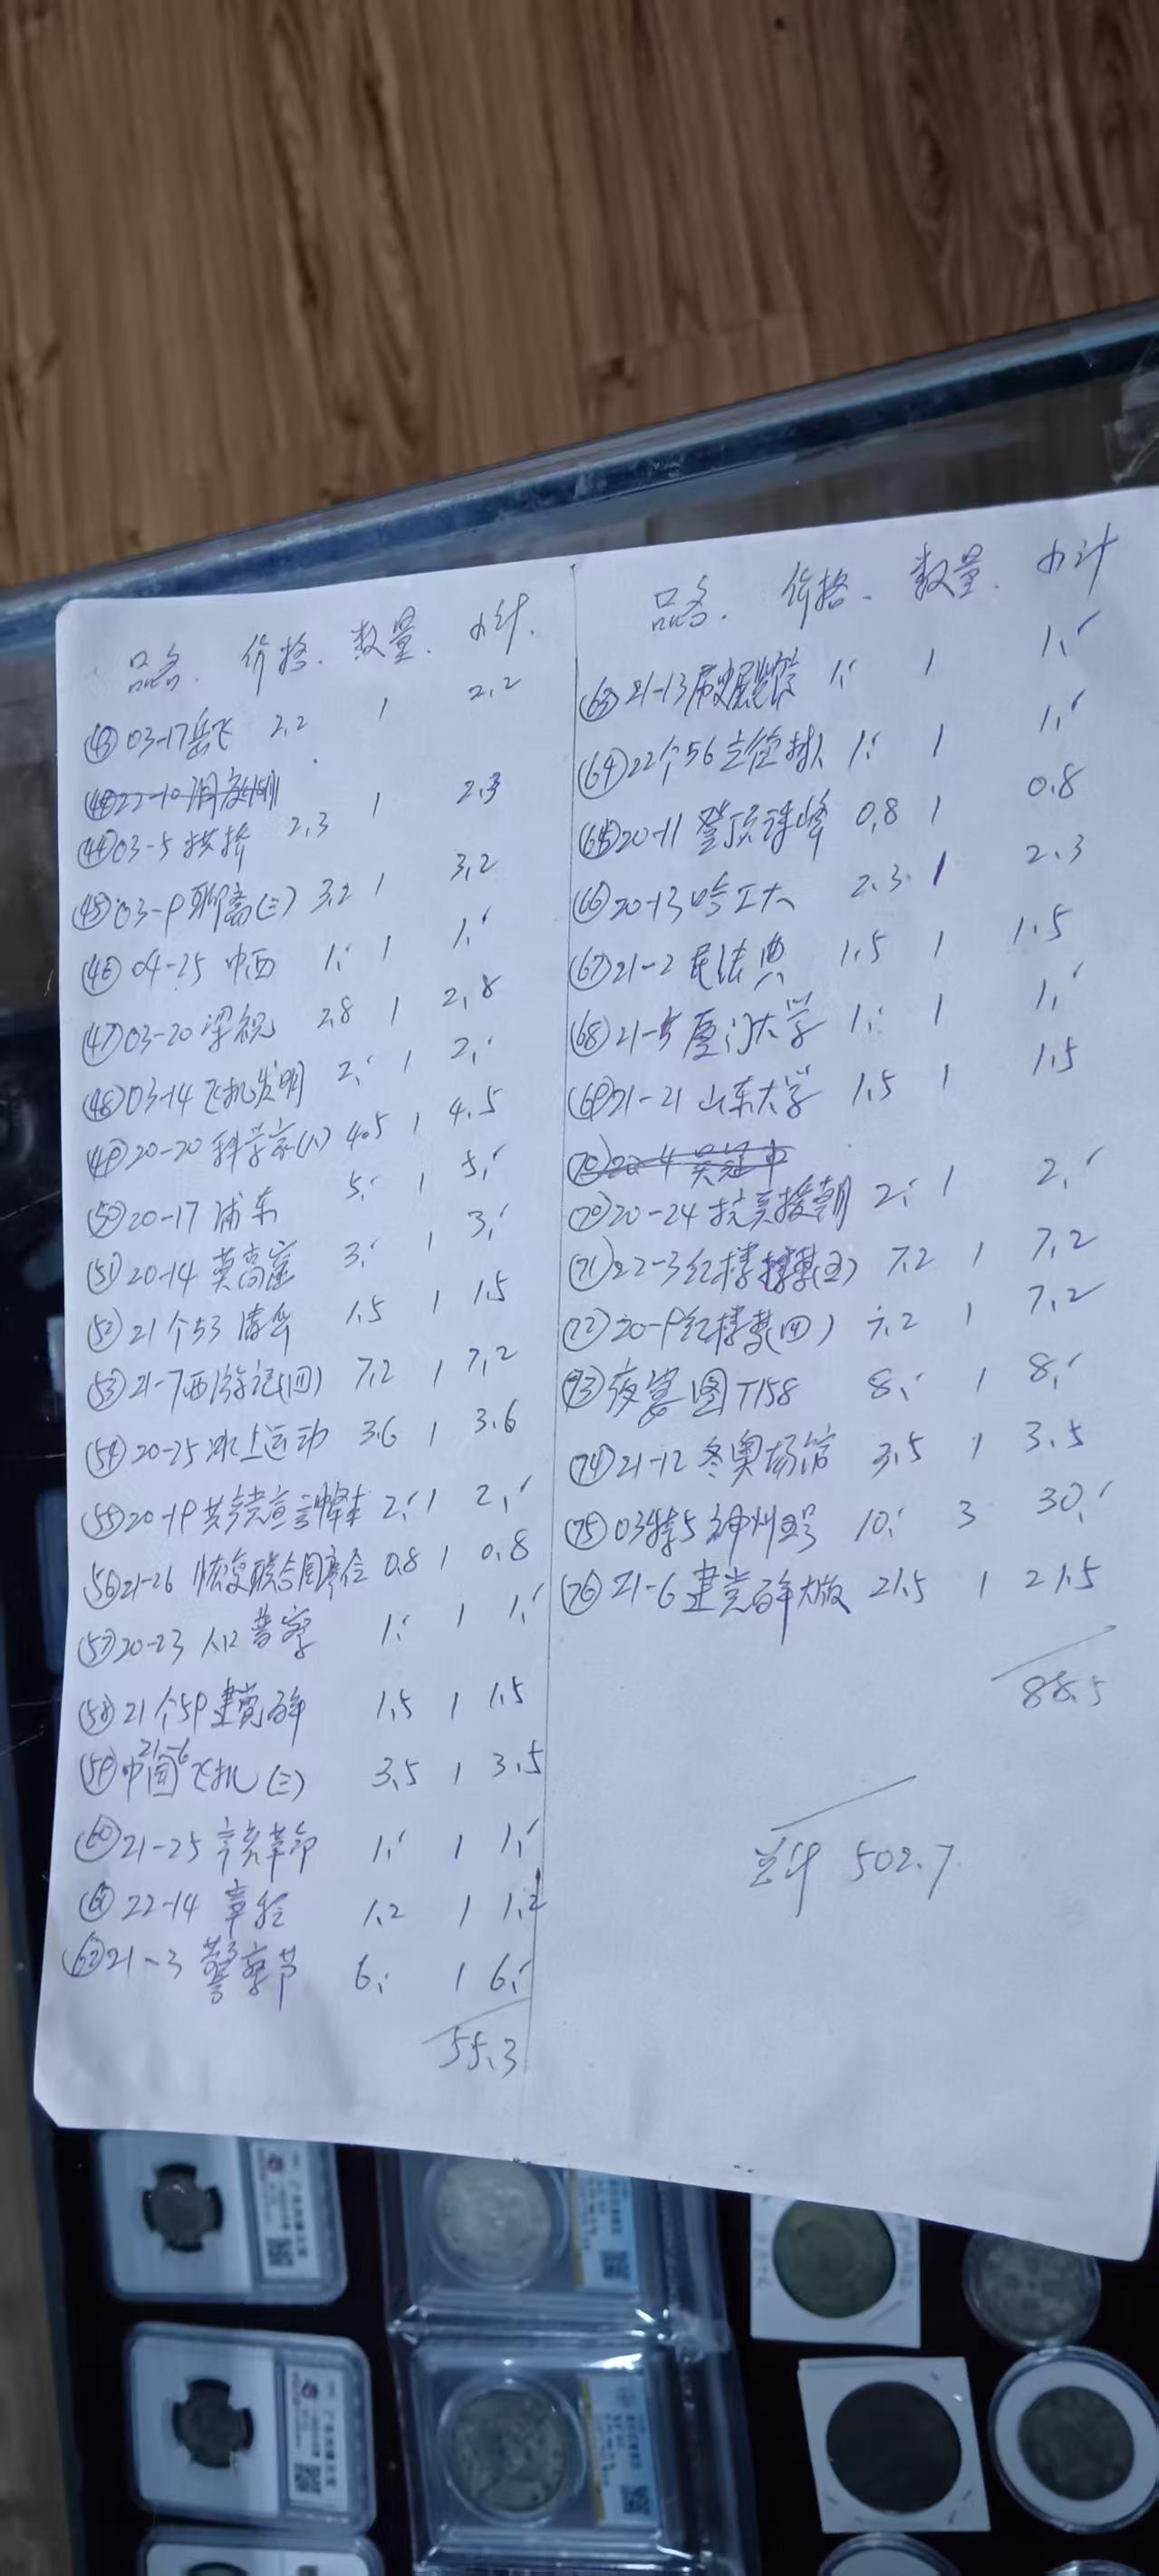 品名. 价格. 数量. 小计.
㊸03-17岳飞 2.2 1 2.2
㊹03-5拱桥 2.3 1 2.3
㊺03-9聊斋(三) 3.2 1 3.2
㊻04-25 中西 1.- 1 1.-
㊼03-20梁祝 2.8 1 2.8
㊽03-14飞机发明 2.- 1 2.-
㊾20-20科学家(八) 4.5 1 4.5
㊿20-17浦东 5.- 1 5.-
(51)20-14 莫高窟 3.- 1 3.-
(52)21个53 清华 1.5 1 1.5
(53)21-7西游记(四) 7.2 1 7.2
(54)20-25冰上运动 3.6 1 3.6
(55)20-19共产党宣言 2.- 1 2.-
(56)21-26 恢复联合国席位 0.8 1 0.8
(57)20-23 人口普察 1.- 1 1.-
(58)21个59建党百年 1.5 1 1.5
(59)21-6中国飞机(三) 3.5 1 3.5
(60)21-25 辛亥革命 1.- 1 1.-
(61)22-14 章程 1.2 1 1.2
(62)21-3 警察节 6.- 1 6.-
55.3
品名. 价格. 数量. 小计
(63)21-13 1.- 1 1.-
(64)22个56 1.- 1 1.-
(65)20-11 登顶珠峰 0.8 1 0.8
(66)20-13哈工大 2.3 1 2.3
(67)21-2 民法典 1.5 1 1.5
(68)21-5厦门大学 1.- 1 1.-
(69)21-21 山东大学 1.5 1 1.5
(70)22-4 吴冠中
(70)20-24抗美援朝 2.- 1 2.-
(71)22-3红楼梦(五) 7.2 1 7.2
(72)20-9红楼梦(四) 7.2 1 7.2
(73)夜宴图T158 8.- 1 8.-
(74)21-12冬奥场馆 3.5 1 3.5
(75)03特5神州五号 10.- 3 30.-
(76)21-6建党百年大版 21.5 1 21.5
88.5
总计 502.7